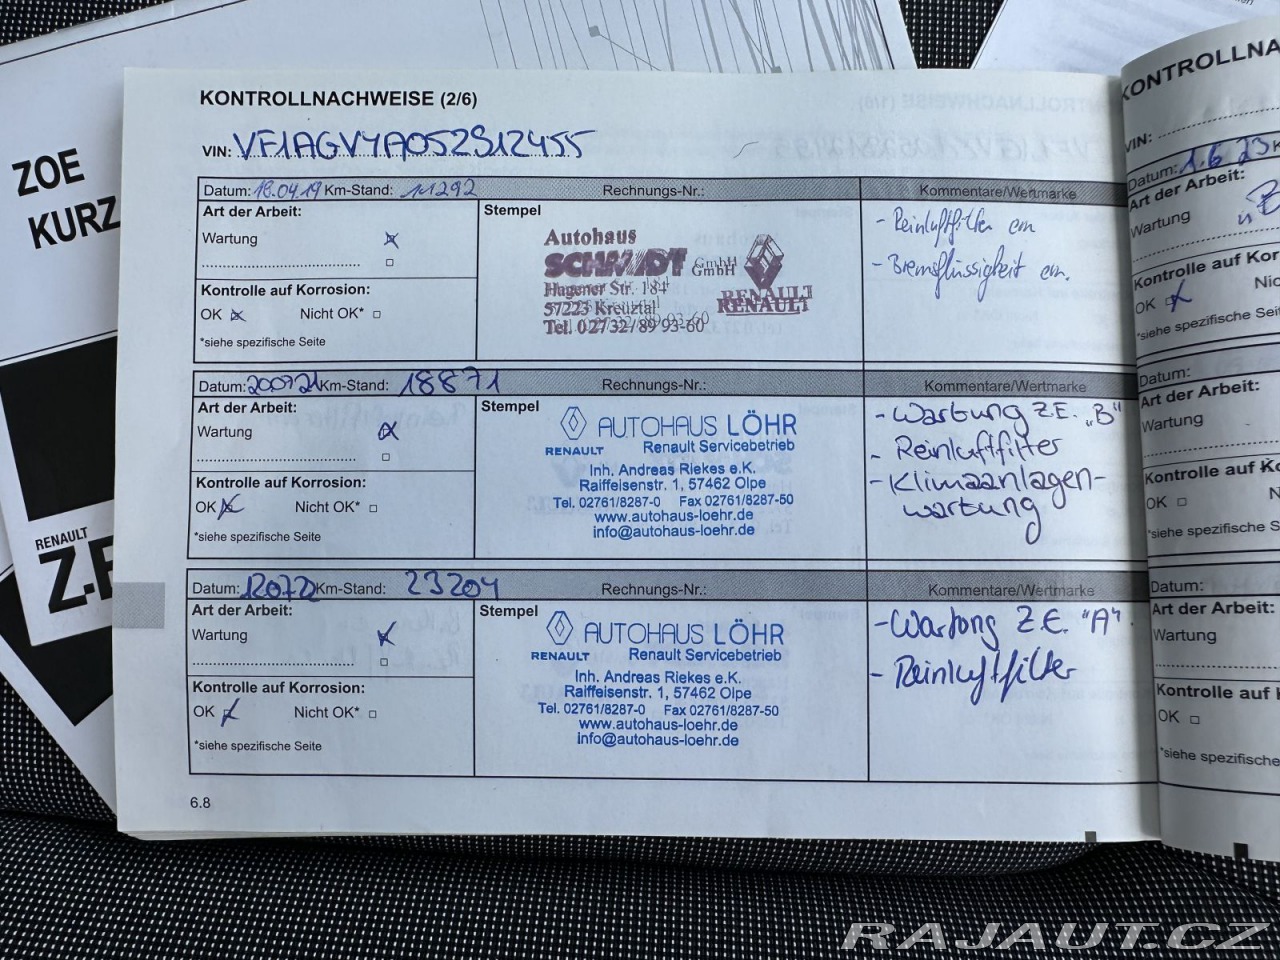 ZOE
KURZ
RENAULT
KONTROLLNACHWEISE (2/6)
VIN: VF1AGVYA052812455
Datum: 18.04.19 Km-Stand: 11292 Rechnungs-Nr.: Kommentare/Wertmarke
Art der Arbeit: Stempel
Wartung
Kontrolle auf Korrosion:
OK Nicht OK*
*siehe spezifische Seite
Autohaus
SCHMIDT GmbH
GmbH
Hagener Str. 184
57223 Kreuztal
Tel. 02732/8993-60
RENAULT
RENAULT
- Reinluftfilter ern
- Bremsflüssigkeit ern.
Datum: 200721 Km-Stand: 18871 Rechnungs-Nr.: Kommentare/Wertmarke
Art der Arbeit: Stempel
Wartung
Kontrolle auf Korrosion:
OK Nicht OK*
*siehe spezifische Seite
RENAULT
AUTOHAUS LÖHR
Renault Servicebetrieb
Inh. Andreas Riekes e.K.
Raiffeisenstr. 1, 57462 Olpe
Tel. 02761/8287-0 Fax 02761/8287-50
www.autohaus-loehr.de
info@autohaus-loehr.de
- Wartung Z.E. „B"
- Reinluftfilter
- Klimaanlagen-
wartung
Datum: 120722 Km-Stand: 23204 Rechnungs-Nr.: Kommentare/Wertmarke
Art der Arbeit: Stempel
Wartung
Kontrolle auf Korrosion:
OK Nicht OK*
*siehe spezifische Seite
RENAULT
AUTOHAUS LÖHR
Renault Servicebetrieb
Inh. Andreas Riekes e.K.
Raiffeisenstr. 1, 57462 Olpe
Tel. 02761/8287-0 Fax 02761/8287-50
www.autohaus-loehr.de
info@autohaus-loehr.de
- Wartung Z.E. "A"
- Reinluftfilter
6.8
KONTROLLNA
VIN:
Datum: 1.6 23 K
Art der Arbeit:
Wartung
Kontrolle auf Kor
OK Nic
*siehe spezifische Seit
Datum:
Art der Arbeit:
Wartung
Kontrolle auf K
OK
*siehe spezifische S
Datum:
Art der Arbeit:
Wartung
Kontrolle auf
OK
*siehe spezifische
RAJAUT.CZ